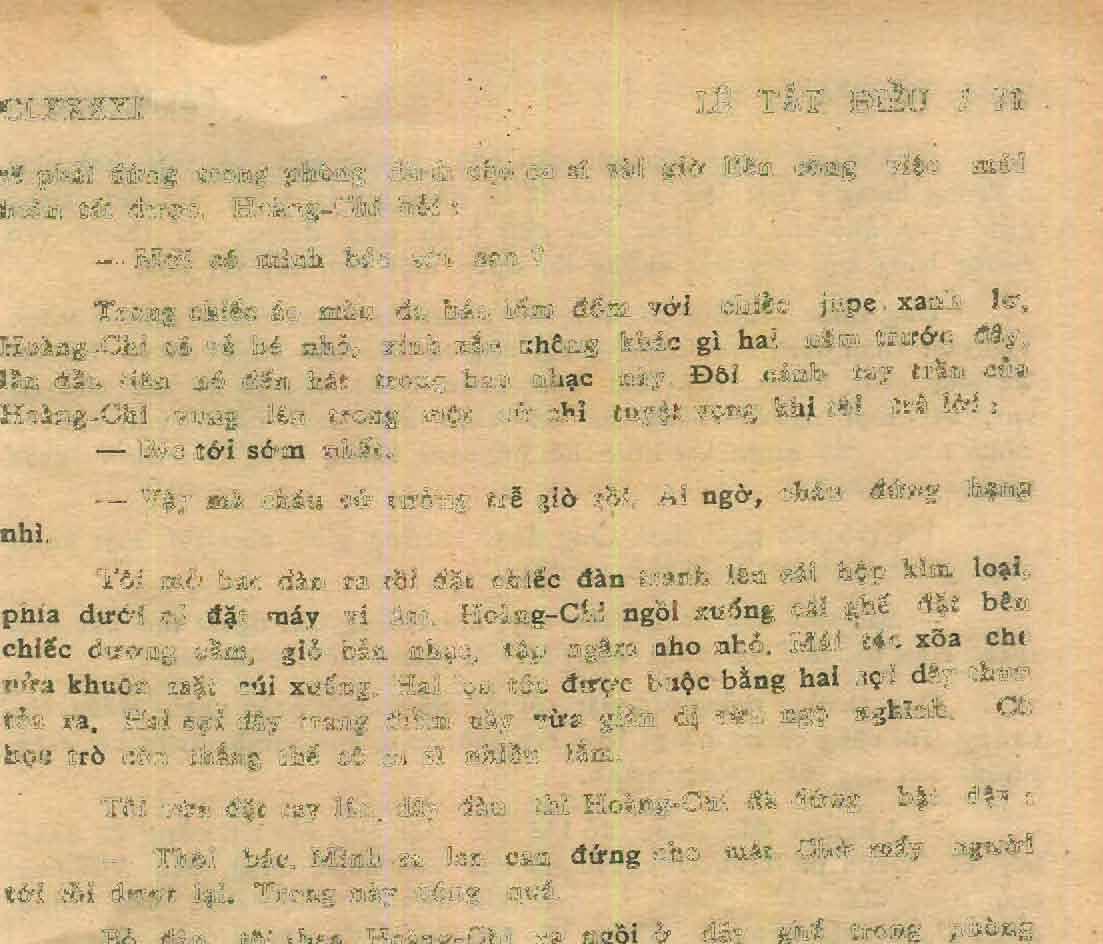 LÊ TẤT ĐIỀU /
phải đứng trong phòng dành cho ca sĩ vài giờ liền công việc mới
tất được. Hoàng-Chi hỏi :
— Mới có mình bác với con ?
Trong chiếc áo màu da bác lốm đốm với chiếc jupe xanh lơ,
Hoàng-Chi có vẻ bé nhỏ, xinh xắn không khác gì hai năm trước đây,
lần đầu tiên nó đến hát trong ban nhạc này. Đôi cánh tay trần của
Hoàng-Chi vung lên trong một cử chỉ tuyệt vọng khi tôi trả lời :
— Bác tới sớm nhất.
— Vậy mà cháu cứ tưởng trễ giờ rồi. Ai ngờ, cháu đứng hạng
nhì.
Tôi mở bao đàn ra rồi đặt chiếc đàn tranh lên cái hộp kim loại,
phía dưới có đặt máy vi âm. Hoàng-Chi ngồi xuống cái ghế đặt bên
chiếc dương cầm, giở bản nhạc, tập ngâm nho nhỏ. Mái tóc xõa che
nửa khuôn mặt cúi xuống. Hai lọn tóc được buộc bằng hai sợi dây thun
tỏa ra. Hai sợi dây trang điểm này vừa giản dị vừa ngộ nghĩnh. Cô
học trò còn thắng thế cô ca sĩ nhiều lắm.
Tôi vừa đặt tay lên dây đàn thì Hoàng-Chi đã đứng bật dậy :
— Thôi bác. Mình ra lan can đứng cho mát. Chờ mấy người
tới rồi dượt lại. Trong này nóng quá.
Bỏ đàn, tôi theo Hoàng-Chi ra ngồi ở dãy ghế trong phòng